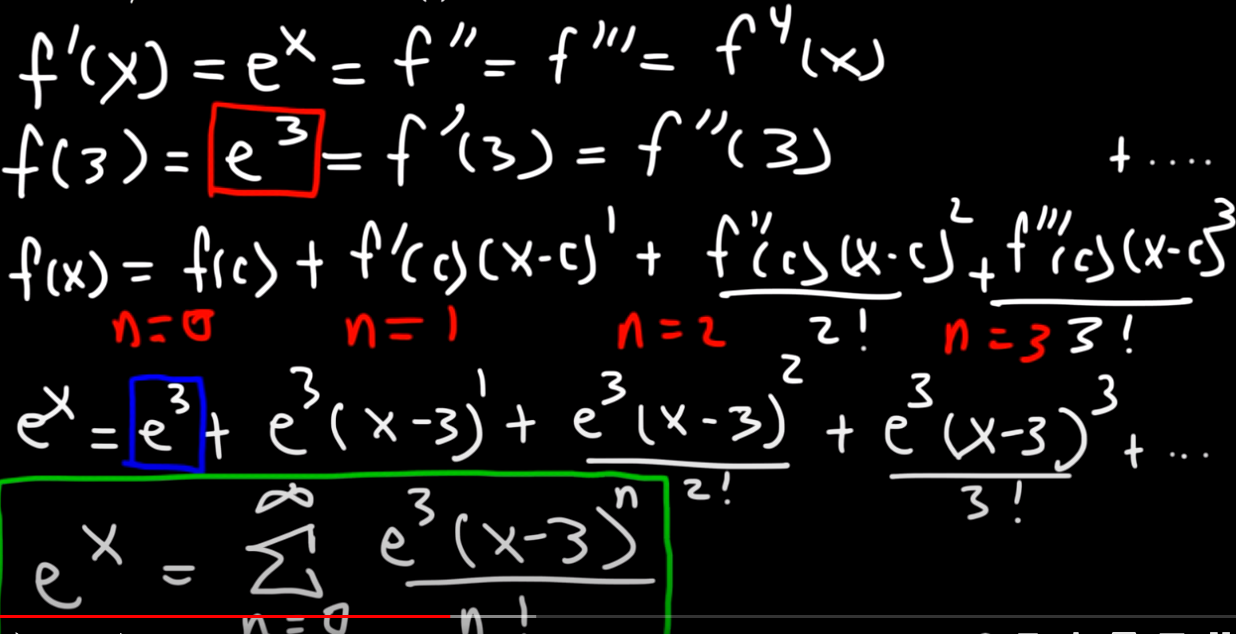 f'(x) = e^x = f'' = f''' = f^4(x)
f(3) = e^3 = f'(3) = f''(3)
+ ....
f(x) = f(c) + f'(c)(x-c)^1 + f''(c)(x-c)^2/2! + f'''(c)(x-c)^3/3!
n=0 n=1 n=2 n=3
e^x = e^3 + e^3(x-3)^1 + e^3(x-3)^2/2! + e^3(x-3)^3/3! + ...
e^x = ∑_{n=0}^{∞} e^3(x-3)^n/n!